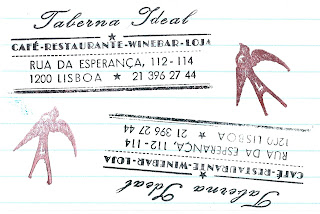 Taberna Ideal
CAFÉ-RESTAURANTE-WINEBAR-LOJA
RUA DA ESPERANÇA, 112-114
1200 LISBOA ★ 21 396 27 44
Taberna Ideal
CAFÉ-RESTAURANTE-WINEBAR-LOJA
RUA DA ESPERANÇA, 112-114
1200 LISBOA ★ 21 396 27 44